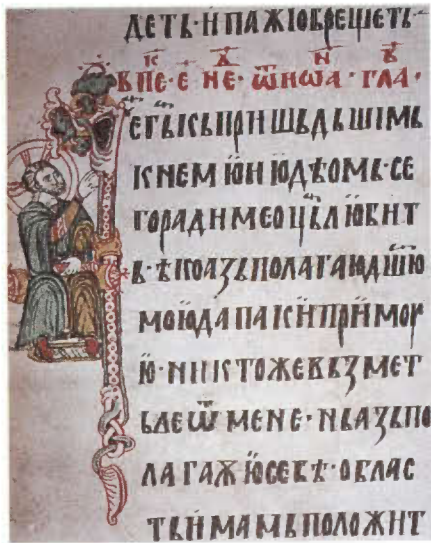 ДЕТЬ·ИПАЖЮБРЕЩЕТЬ·
ВПЕ·Е·НЕ·ѾИѠА·ГЛА·
ЕГЬКЬПРИШЬДЬШИМЬ
КНЕМꙊИЮДѢОМЬ·СЕ
ГОРАДИМЕОЦЬЛЮБИТ
Ь·ѢКОАЗЬПОЛАГАЮДШЮ
МОЮДАПАКИПРИМОУ
Ю·НИКТОЖЕВЬЗМЕТ
ЬѤѾМЕНЕ·НЬАЗЬПО
ЛАГАЖЮСЕБѢ·ОБЛАС
ТЬИМАМЬПОЛОЖИТ